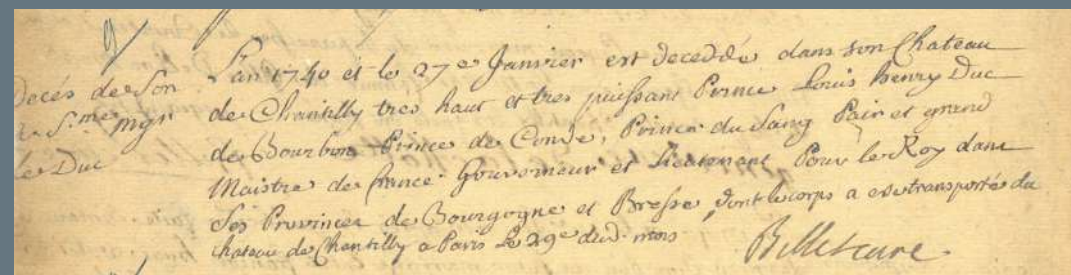 9
Decés de Son
A. S.me mgr
le Duc
L'an 1740 et le 27e Janvier est decedde dans son Chateau
de Chantilly tres haut et tres puissant Prince Louis henry Duc
de Bourbon Prince de Condé, Prince du Sang Pair et grand
Maistre de france. Gouverneur et Lieutenant Pour le Roy dans
ses Provinces de Bourgogne et Bresse, dont le corps a esté transporté du
chateau de Chantilly a Paris Le 29e dud. mois